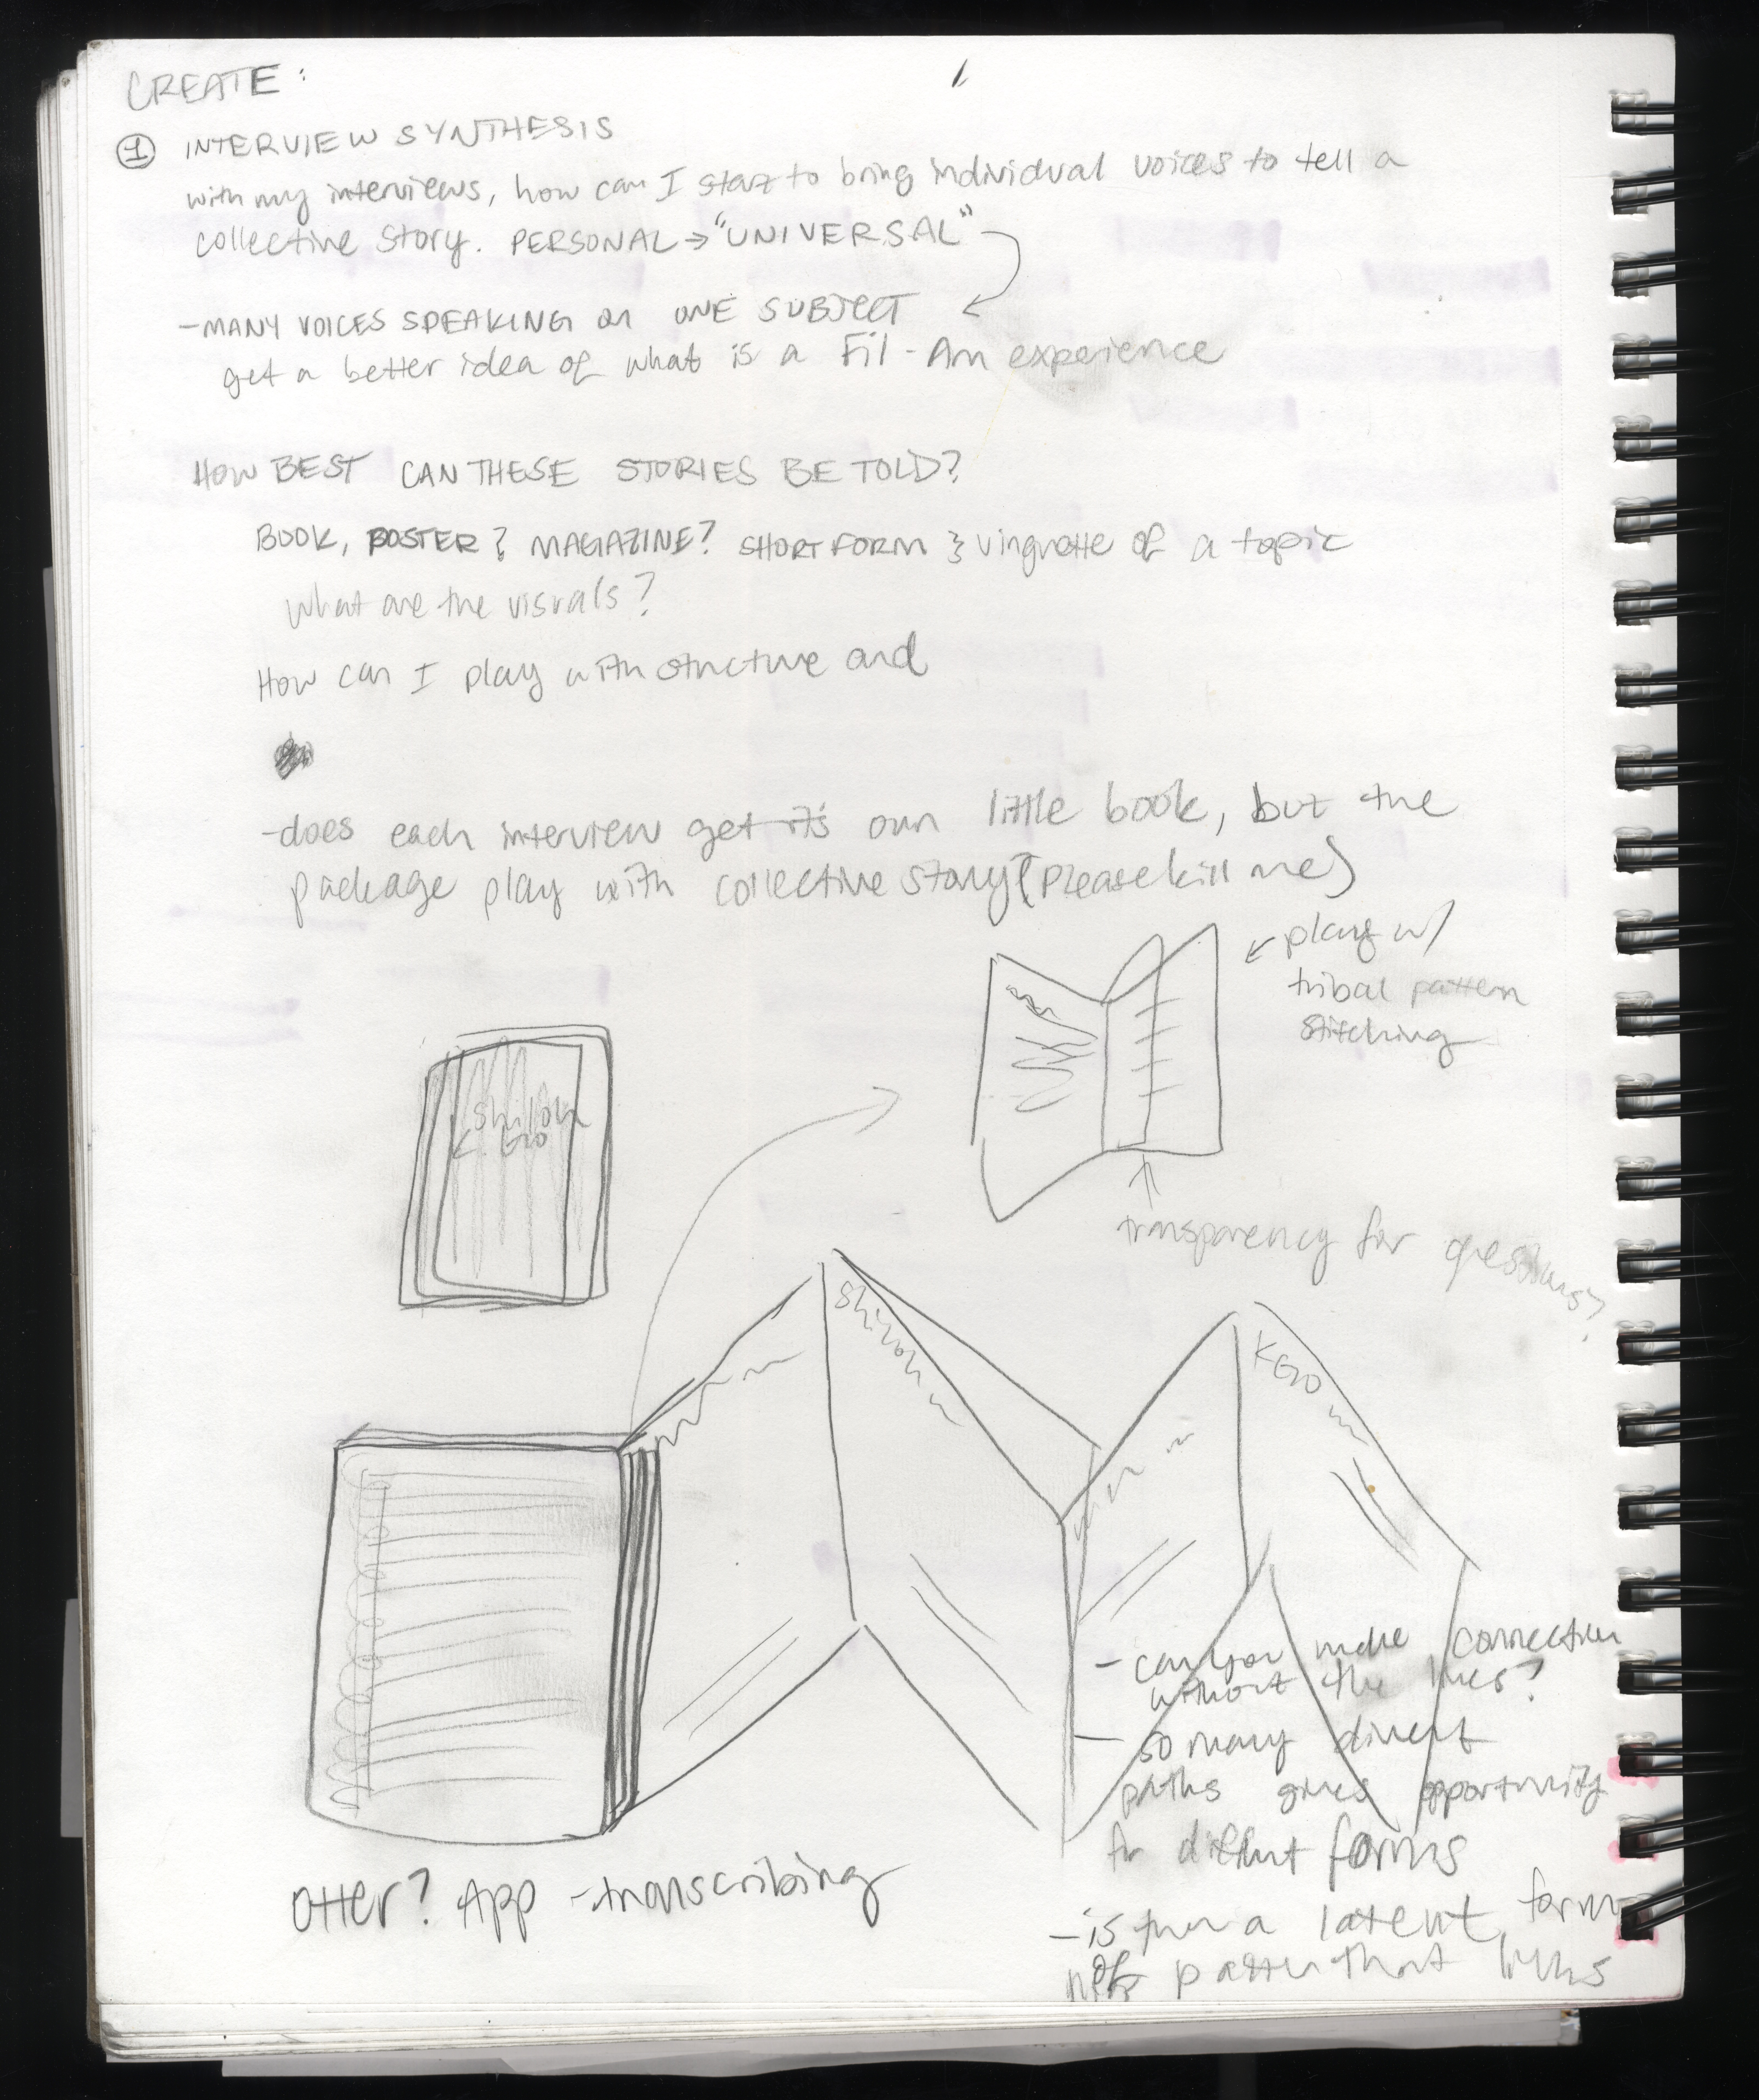 CREATE:
① INTERVIEW SYNTHESIS
with my interviews, how can I start to bring individual voices to tell a
collective story. PERSONAL → "UNIVERSAL"
- MANY VOICES SPEAKING on ONE SUBJECT
get a better idea of what is a Fil-Am experience
HOW BEST CAN THESE STORIES BE TOLD?
BOOK, POSTER? MAGAZINE? SHORT FORM } vingnette of a topic
what are the visuals?
How can I play with structure and
- does each interview get it's own little book, but the
package play with collective story (Please kill me)
← play w/
tribal pattern
stitching
Shiloh
K. Gio
transparency for questions?
Shiloh
KGIO
- can you make connection
without the lines?
- so many divert
paths gives opportunity
for diffent forms
Otter? App - transcribing
- is ther a latent form
pattern that links